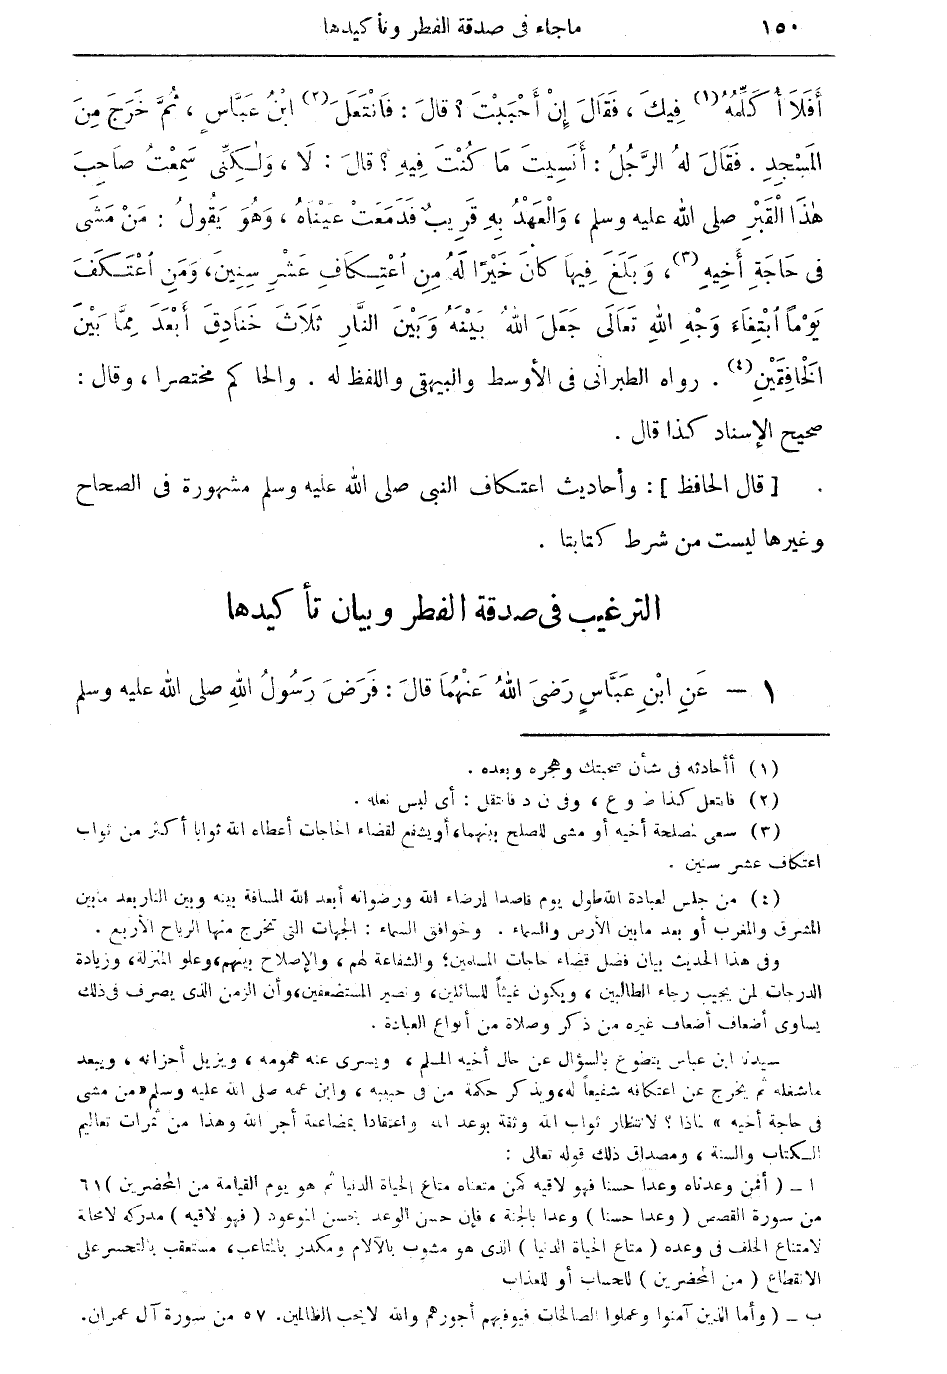 ١٥٠
ماجاء فى صدقة الفطر وتأكيدها
أَفَلَا أُكَلِّمُهُ(١) فِيكَ ، فَقَالَ إِنْ أَحْبَبْتَ ؟ قالَ : فَانْتَعَلَ(٢) ابْنُ عَبَّاسٍ ، ثُمَّ خَرَجَ مِنَ
المَسْجِدِ . فَقَالَ لهُ الرَّجُلُ : أَنَسِيتَ مَا كُنْتَ فِيهِ ؟ قالَ : لَا ، وَلٰكِنِّى سَمِعْتُ صَاحِبَ
هٰذَا الْقَبْرِ صلى الله عليه وسلم ، وَالْعَهْدُ بِهِ قَرِيبٌ فَدَمَعَتْ عَيْنَاهُ ، وَهُوَ يَقُولُ : مَنْ مَشَى
فى حَاجَةِ أَخِيهِ(٣) ، وَبَلَغَ فِيهَا كانَ خَيْرًا لَهُ مِنِ اعْتِكَافِ عَشْرِ سِنِينَ ، وَمَنِ اعْتَكَفَ
يَوْماً ابْتِغَاءَ وَجْهِ اللهِ تَعَالَى جَعَلَ اللهُ بَيْنَهُ وَبَيْنَ النَّارِ ثَلَاثَ خَنَادِقَ أَبْعَدَ مِمَّا بَيْنَ
الْخَافِقَيْنِ(٤) . رواه الطبرانى فى الأوسط والبيهقى واللفظ له . والحاكم مختصرا ، وقال :
صحيح الإسناد كذا قال .
[ قال الحافظ ] : وأحاديث اعتكاف النبى صلى الله عليه وسلم مشهورة فى الصحاح
وغيرها ليست من شرط كتابنا .
الترغيب فى صدقة الفطر وبيان تأكيدها
١ — عَنِ ابْنِ عَبَّاسٍ رَضِىَ اللهُ عَنْهُمَا قالَ : فَرَضَ رَسُولُ اللهِ صلى الله عليه وسلم
(١) أأحادثه فى شأن صحبتك وهجره وبعده .
(٢) فانتعل كذا ط و ع ، وفى ن د فانتقل : أى لبس نعله .
(٣) سعى لمصلحة أخيه أو مشى للصلح بينهما، أو يشفع لقضاء الحاجات أعطاه الله ثوابا أكثر من ثواب
اعتكاف عشر سنين .
(٤) من جلس لعبادة الله طول يوم قاصدا إرضاء الله ورضوانه أبعد الله المسافة بينه وبين النار بعد مابين
المشرق والمغرب أو بعد مابين الأرض والسماء . وخوافق السماء : الجهات التى تخرج منها الرياح الأربع .
وفى هذا الحديث بيان فضل قضاء حاجات المسلمين؛ والشفاعة لهم ، والإصلاح بينهم،وعلو المنزلة، وزيادة
الدرجات لمن يجيب رجاء الطالبين ، ويكون غيثاً للسائلين، ونصير المستضعفين،وأن الزمن الذى يصرف فى ذلك
يساوى أضعاف أضعاف غيره من ذكر وصلاة من أنواع العبادة .
سيدنا ابن عباس يتطوع بالسؤال عن حال أخيه المسلم ، ويسرى عنه همومه ، ويزيل أحزانه ، ويبعد
ماشغله ثم يخرج عن اعتكافه شفيعاً له،ويذكر حكمة من فى حبيبه ، وابن عمه صلى الله عليه وسلم«من مشى
فى حاجة أخيه » لماذا ؟ لانتظار ثواب الله وثقة بوعد الله واعتقادا بمضاعفة أجر الله وهذا من ثمرات تعاليم
الكتاب والسنة ، ومصداق ذلك قوله تعالى :
ا ــ ( أفمن وعدناه وعدا حسنا فهو لاقيه كمن متعناه متاع الحياة الدنيا ثم هو يوم القيامة من المحضرين )٦١
من سورة القصص ( وعدا حسنا ) وعدا بالجنة ، فإن حسن الوعد بحسن الموعود ( فهو لاقيه ) مدركه لامحالة
لامتناع الخلف فى وعده ( متاع الحياة الدنيا ) الذى هو مشوب بالآلام ومكدر بالمتاعب، مستعقب بالتحسر على
الانقطاع ( من المحضرين ) للحساب أو للعذاب
ب ــ ( وأما الذين آمنوا وعملوا الصالحات فيوفيهم أجورهم والله لايحب الظالمين. ٥٧ من سورة آل عمران.